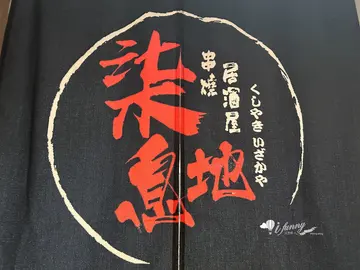 柒息地
串燒
居酒屋
くしやき いざかや
i funny